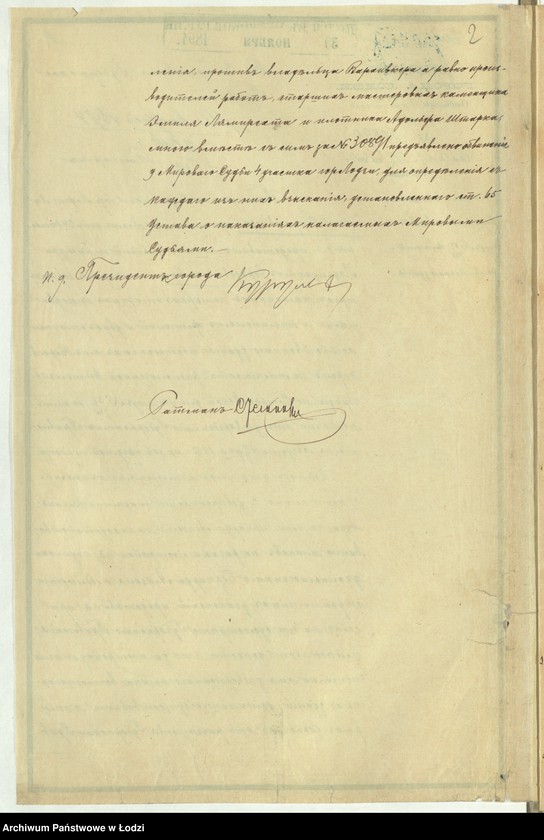 2
ленія, противъ владѣльца Варашкера а равно произ-
водителей работъ, старшихъ мастеровъ каменщика
Эмиля Лямпрехта и плотника Адольфа Штарка,
мною вмѣстѣ съ симъ за № 30891 предъявлено обвиненіе
у Мироваго Судьи 4 участка гор. Лодзи, для опредѣленія съ
каждаго изъ нихъ взысканія, установленнаго ст. 65
Устава о наказаніяхъ налагаемыхъ Мировыми
Судьями. —
и. д. Президента города
Ратманъ
Archiwum Państwowe w Łodzi